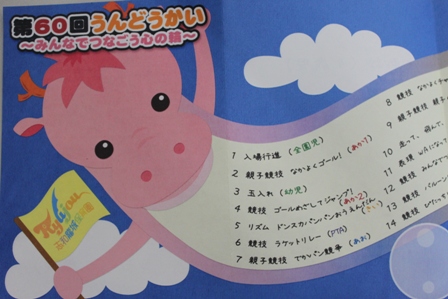 第60回うんどうかい
～みんなでつなごう心の輪～
1 入場行進 (全園児)
2 親子競技 なかよくゴール! (あか1)
3 玉入れ (幼児)
4 競技 ゴールめざしてジャンプ! (あか2)
5 リズム ドンスカパンパンおうえんだん
6 競技 ラケットリレー (PTA)
7 親子競技 でかパン競争 (あお)
8 競技 なかよく
9 親子競技 親子
10 走って、飛んで、
11 表現
12 競技 みんなで
13 競技 バルーン
14 競技